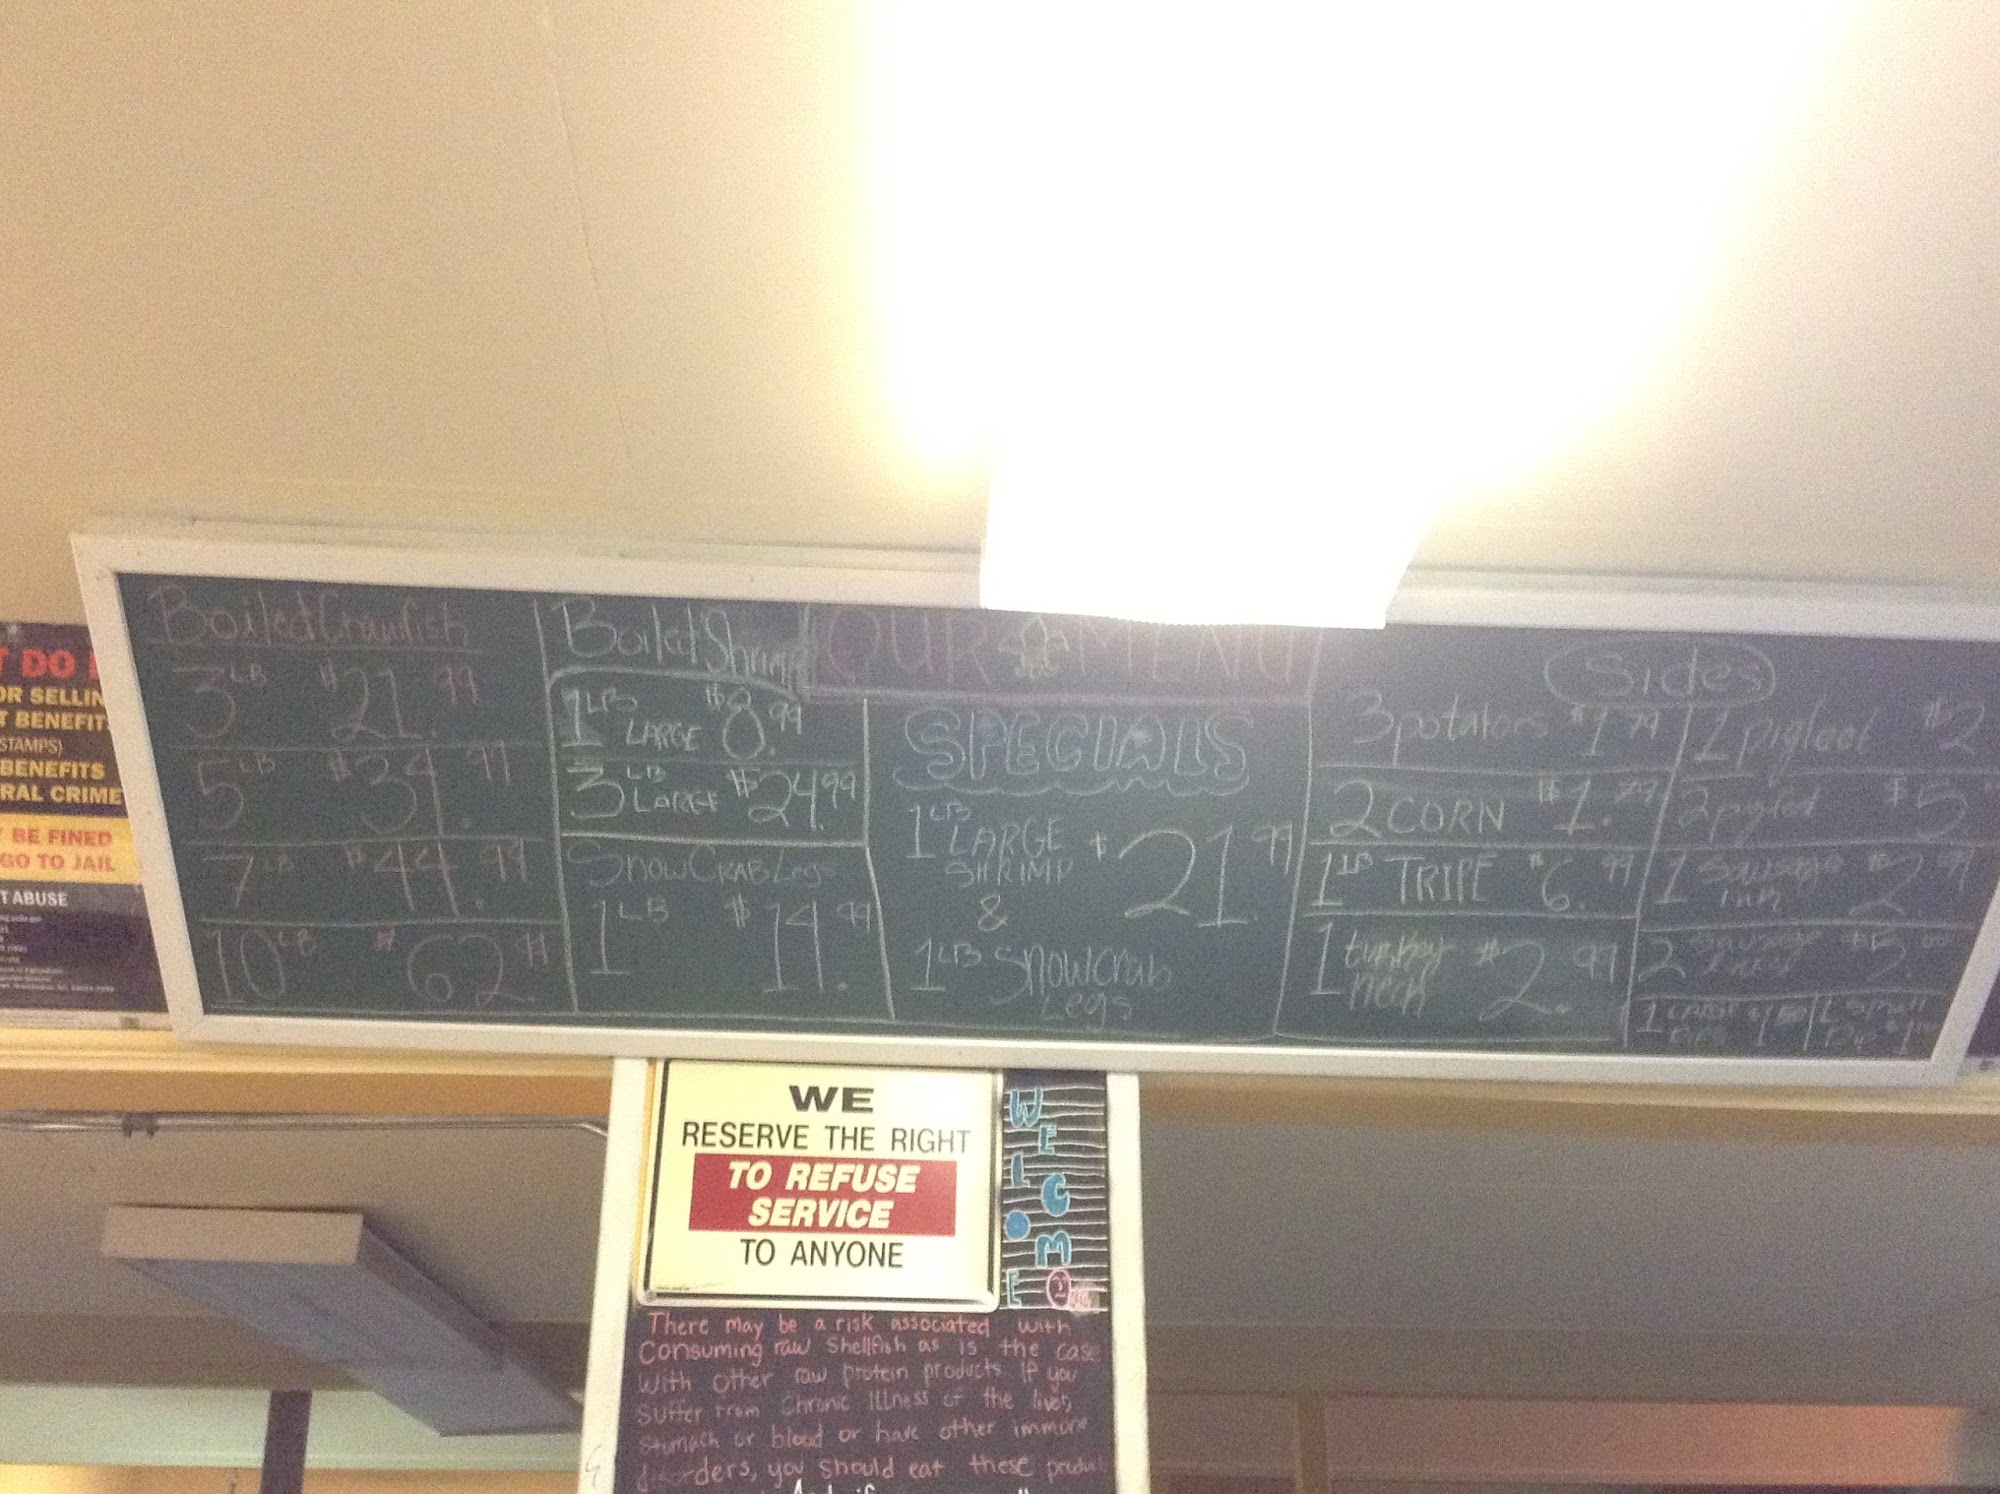 OUR MENU
Boiled Crawfish
3 LB $21.99
5 LB $34.99
7 LB $44.99
10 LB $62.99
Boiled Shrimp
1 LB LARGE $8.99
3 LB LARGE $24.99
Snow CRAB Legs
1 LB $14.99
SPECIALS
1 LB LARGE
SHRIMP
&
1 LB Snowcrab
Legs
$21.99
Sides
3 potatoes $1.79
2 CORN $1.79
1 LB TRIPE $6.99
1 turkey
neck $2.99
1 pigfeet $2
2 pigfeet $5
1 Sausage
link $2.99
2 Sausage
links $5.00
1 LARGE
1 Small
T DO
OR SELLIN
T BENEFIT
STAMPS)
BENEFITS
RAL CRIME
BE FINED
GO TO JAIL
T ABUSE
WE
RESERVE THE RIGHT
TO REFUSE
SERVICE
TO ANYONE
WELCOME
There may be a risk associated with
Consuming raw Shellfish as is the case
With other raw protein products. If you
Suffer from Chronic Illness of the liver,
Stomach or blood or have other immune
disorders, you should eat these product